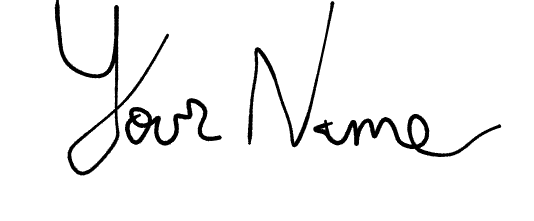 Your Name